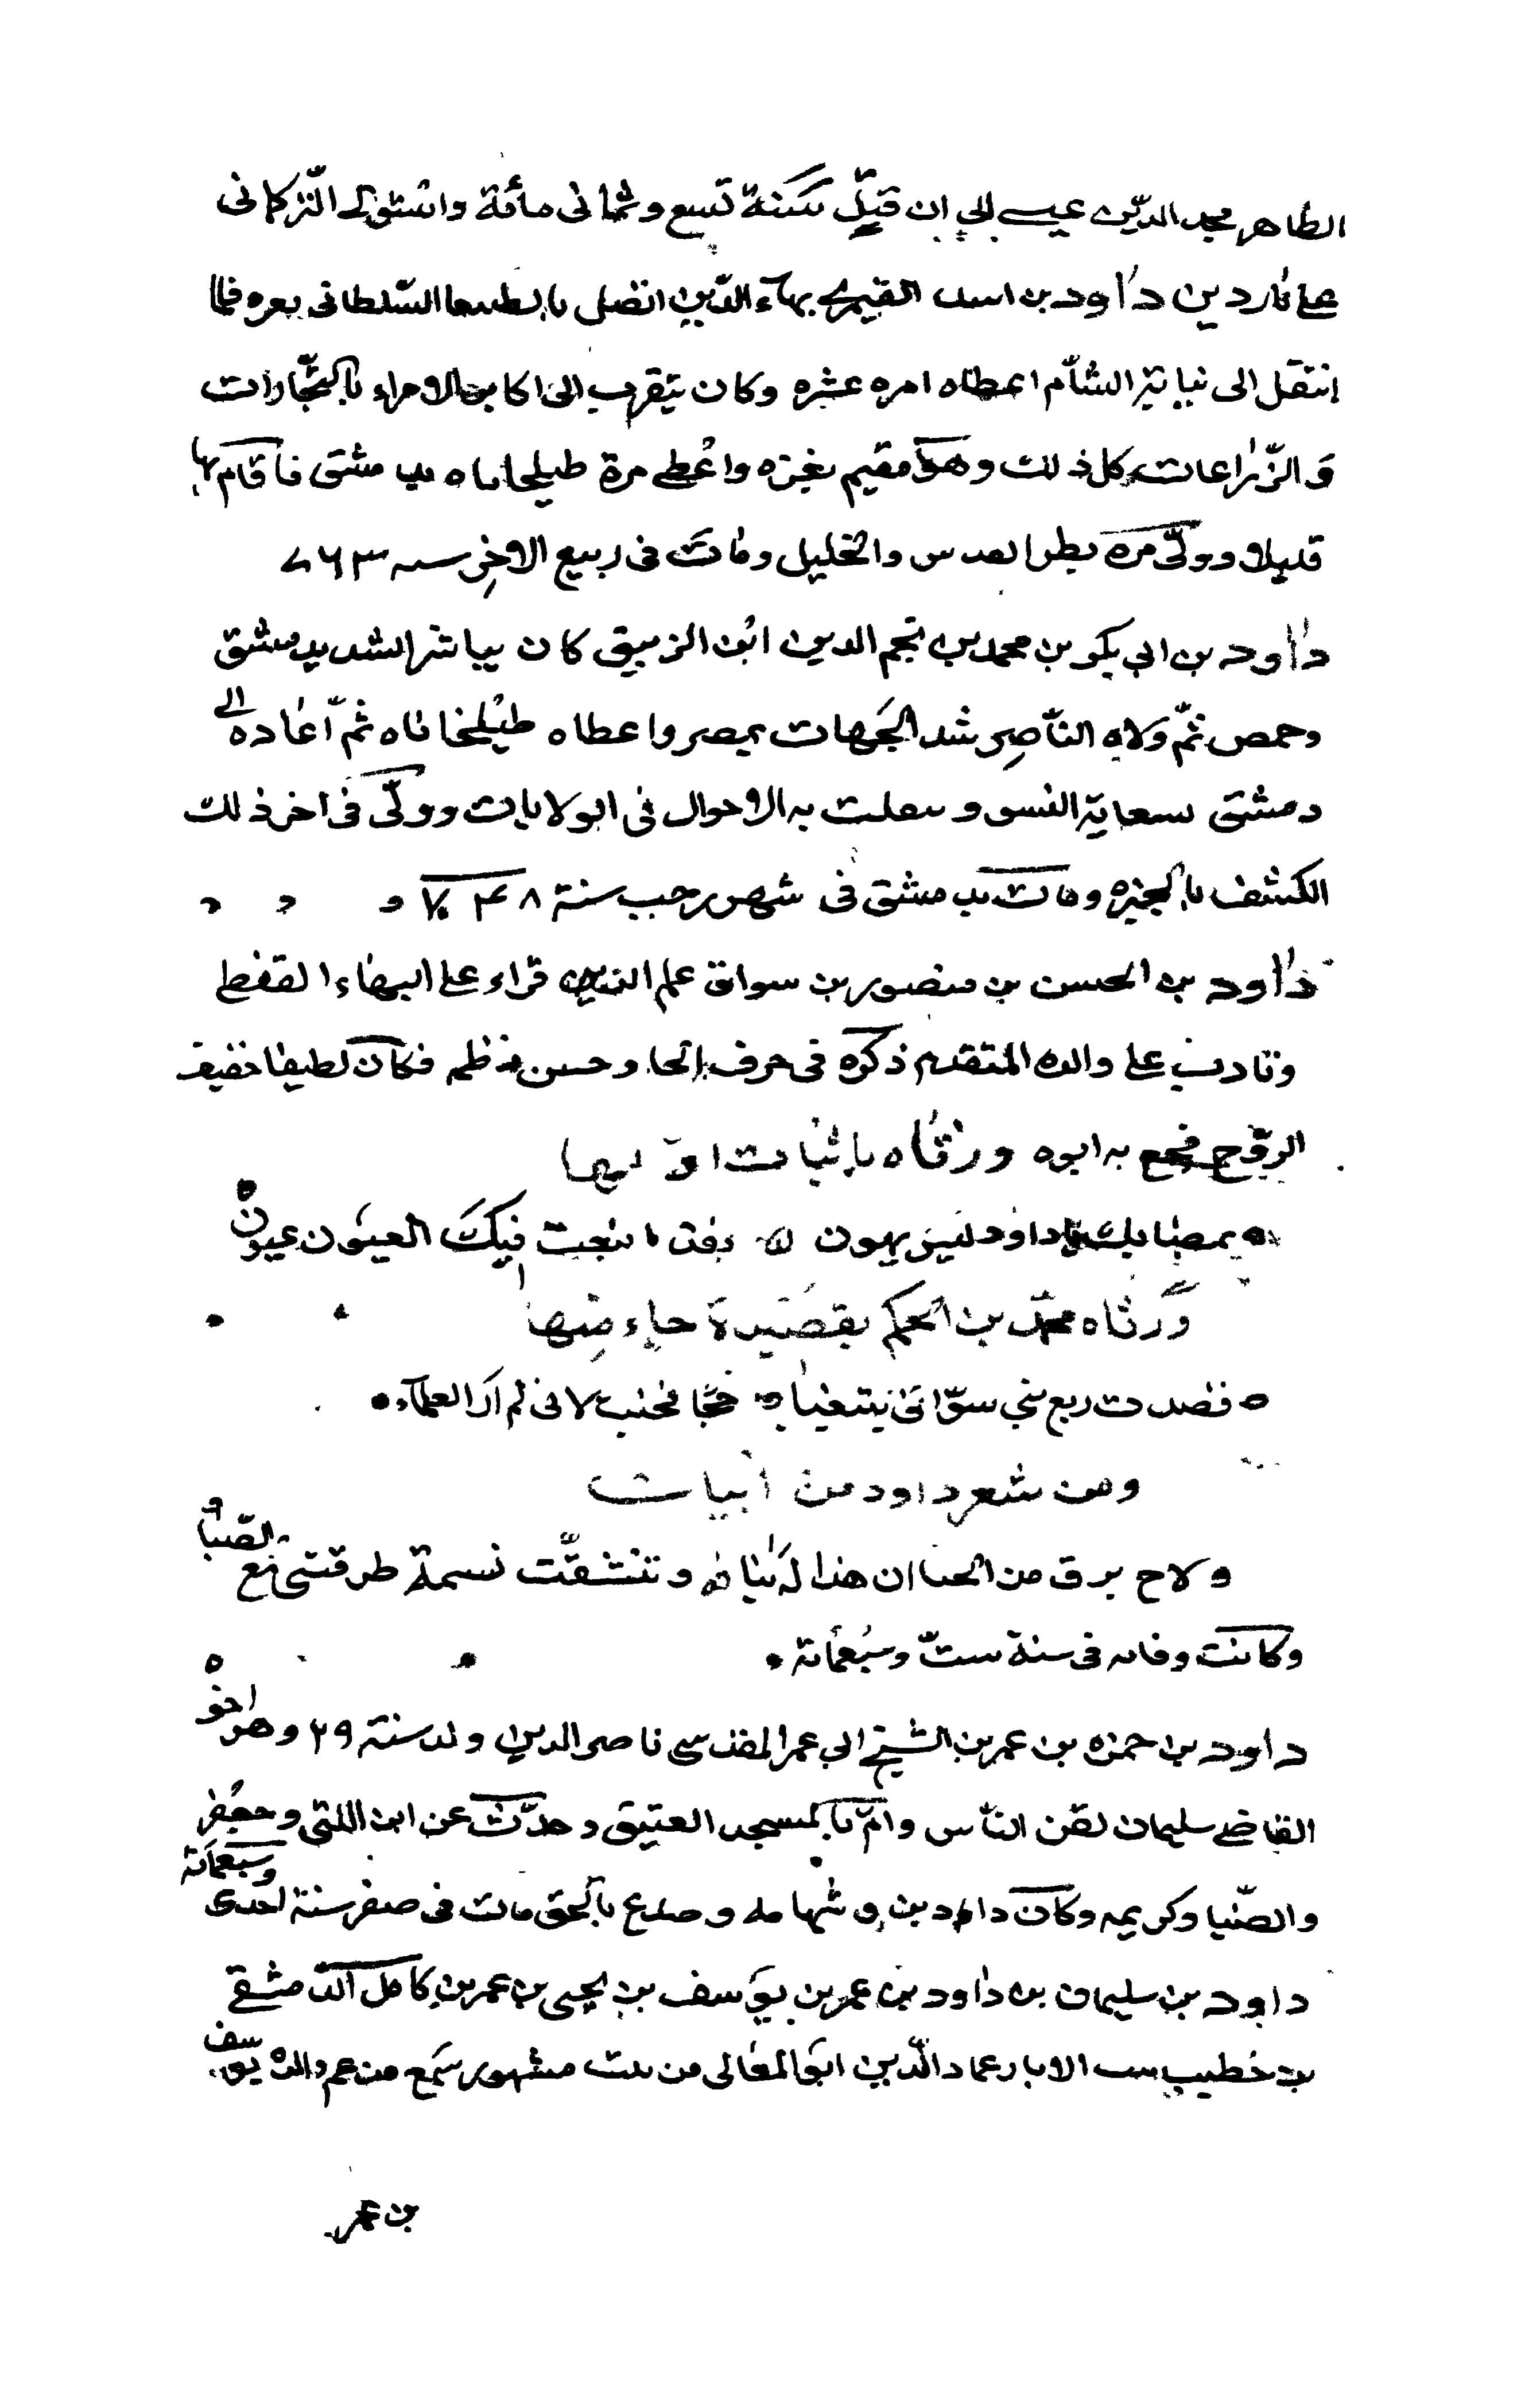 الظاهر مجد الدين عيسى الى ان قتل سنة تسع وثمانى مائة واستولى التركمانى
على ماردين داود بن اسد القيمرى بهآء الدين اتصل بالطنبغا السلطانى بغزه فلما
انتقل الى نيابة الشام اعطاه امره عشره وكان يتقرب الى اكابر الامراء بالتجارات
والزراعات كل ذلك وهو مقيم بغزه واعطى مرة طبلخاناه بدمشق فأقام بها
قليلا وولى مره نظر القدس والخليل ومات فى ربيع الاخر سنه ٧٦٣
داود بن ابى بكر بن محمد بن نجم الدين ابن الزيبق كان يباشر الشد بدمشق
وحمص ثم ولاه الناصر شد الجهات بمصر واعطاه طبلخاناه ثم أعاده الى
دمشق بسعاية النشو وتنقلت به الاحوال فى الولايات وولى فى اخر ذلك
الكشف بالجيزه ومات بدمشق فى شهر رجب سنة ٧٤٨
داود بن الحسن بن منصور بن سواق علم الدين قراء على البهاء القفطى
وتادب على والده المتقدم ذكره فى حرف الحاء وحسن نظمه فكان لطيفا خفيف
الروح فجع به ابوه ورثاه بابيات اولها
بمصابك يا داود ليس يهون فقد انبعت فيك العيون عيون
ورثاه محمد بن الحكم بقصيدة جاء منها
قصدت ربع بنى سواق نبتغيا فجا نجنب لانى لم أر العلمآء
ومن شعر داود من أبيات
ولاح برق من الحنا ان هذا له نبا وتنشقت نسمة طرقتنى مع الصبا
وكانت وفاته فى سنة ست وسبعمائة
داود بن حمزه بن عمر بن الشيخ ابى عمر المقدسى ناصر الدين ولد سنة ٢٩ وهو اخو
القاضى سليمان لقن الناس وأم بالمسجد العتيق وحدث عن ابن اللتى وجعفر
والضيا وكريمه وكان دا دين وشهامه وصدع بالحق مات فى صفر سنة احدى وسبعمائة
داود بن سليمان بن داود بن عمر بن يوسف بن يحيى بن عمر بن كامل الدمشقى
بن خطيب بيت الابار عماد الدين ابو المعالى من بيت مشهور سمع من عم والده يوسف
بن عمر